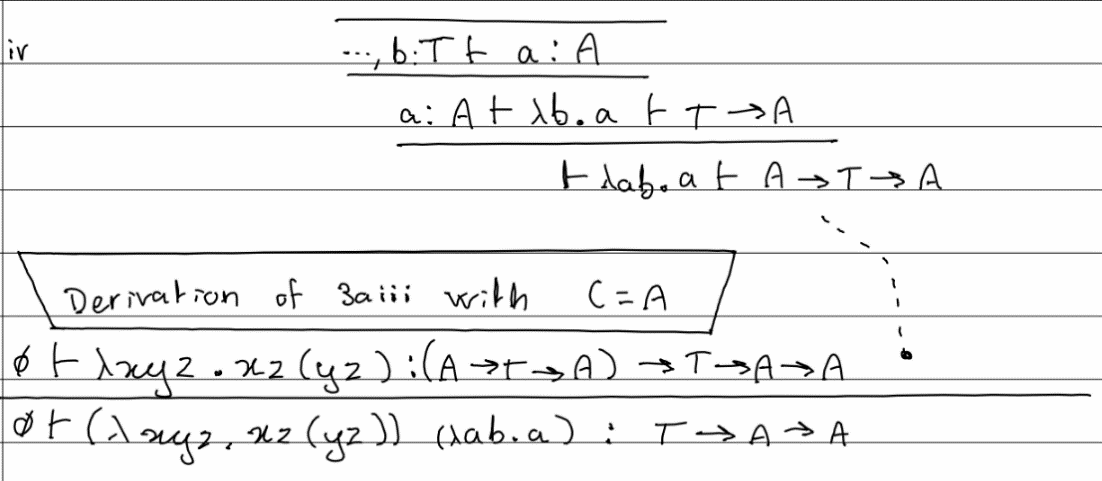 iv
..., b:T ⊢ a : A
a: A ⊢ λb.a ⊢ T → A
⊢ λab.a ⊢ A → T → A
Derivation of 3aiii with C = A
ø ⊢ λxyz.xz(yz):(A→t→A) → T→A→A
ø ⊢ (λxyz.xz(yz)) (λab.a) : T → A → A